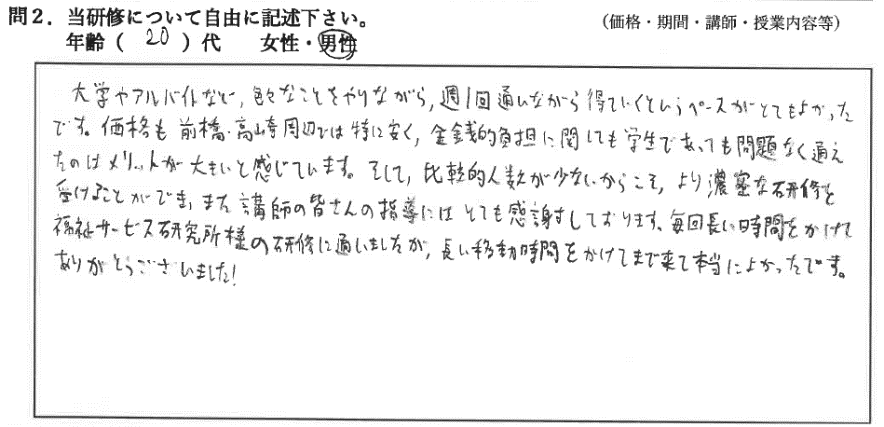 問2．当研修について自由に記述下さい。
（価格・期間・講師・授業内容等）
年齢（ 20 ）代　女性・男性
大学やアルバイトなど、色々なことをやりながら、週1回通いながら得ていくというペースがとてもよかった
です。価格も前橋・高崎周辺では特に安く、金銭的負担に関しても学生であっても問題なく通え
たのはメリットが大きいと感じています。そして、比較的人数が少ないからこそ、より濃密な研修を
受けることができ、また講師の皆さんの指導にはとても感謝しております。毎回長い時間をかけて
福祉サービス研究所様の研修に通いましたが、長い移動時間をかけてまで来て本当によかったです。
ありがとうございました！